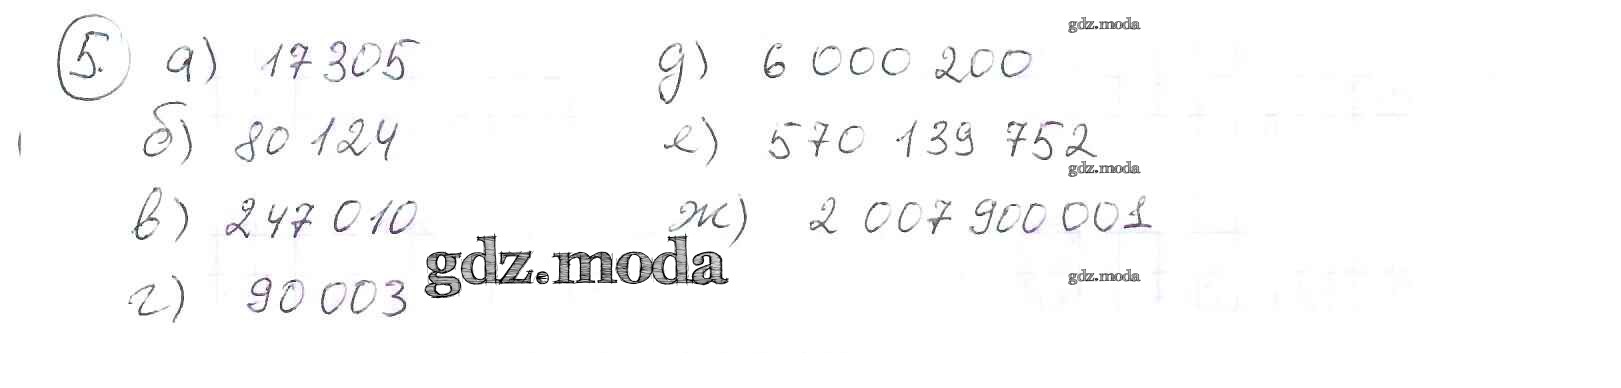 5. а) 17305
б) 80 124
в) 247 010
г) 90 003
д) 6 000 200
е) 570 139 752
ж) 2 007 900 001
gdz.moda
gdz.moda
gdz.moda
gdz.moda